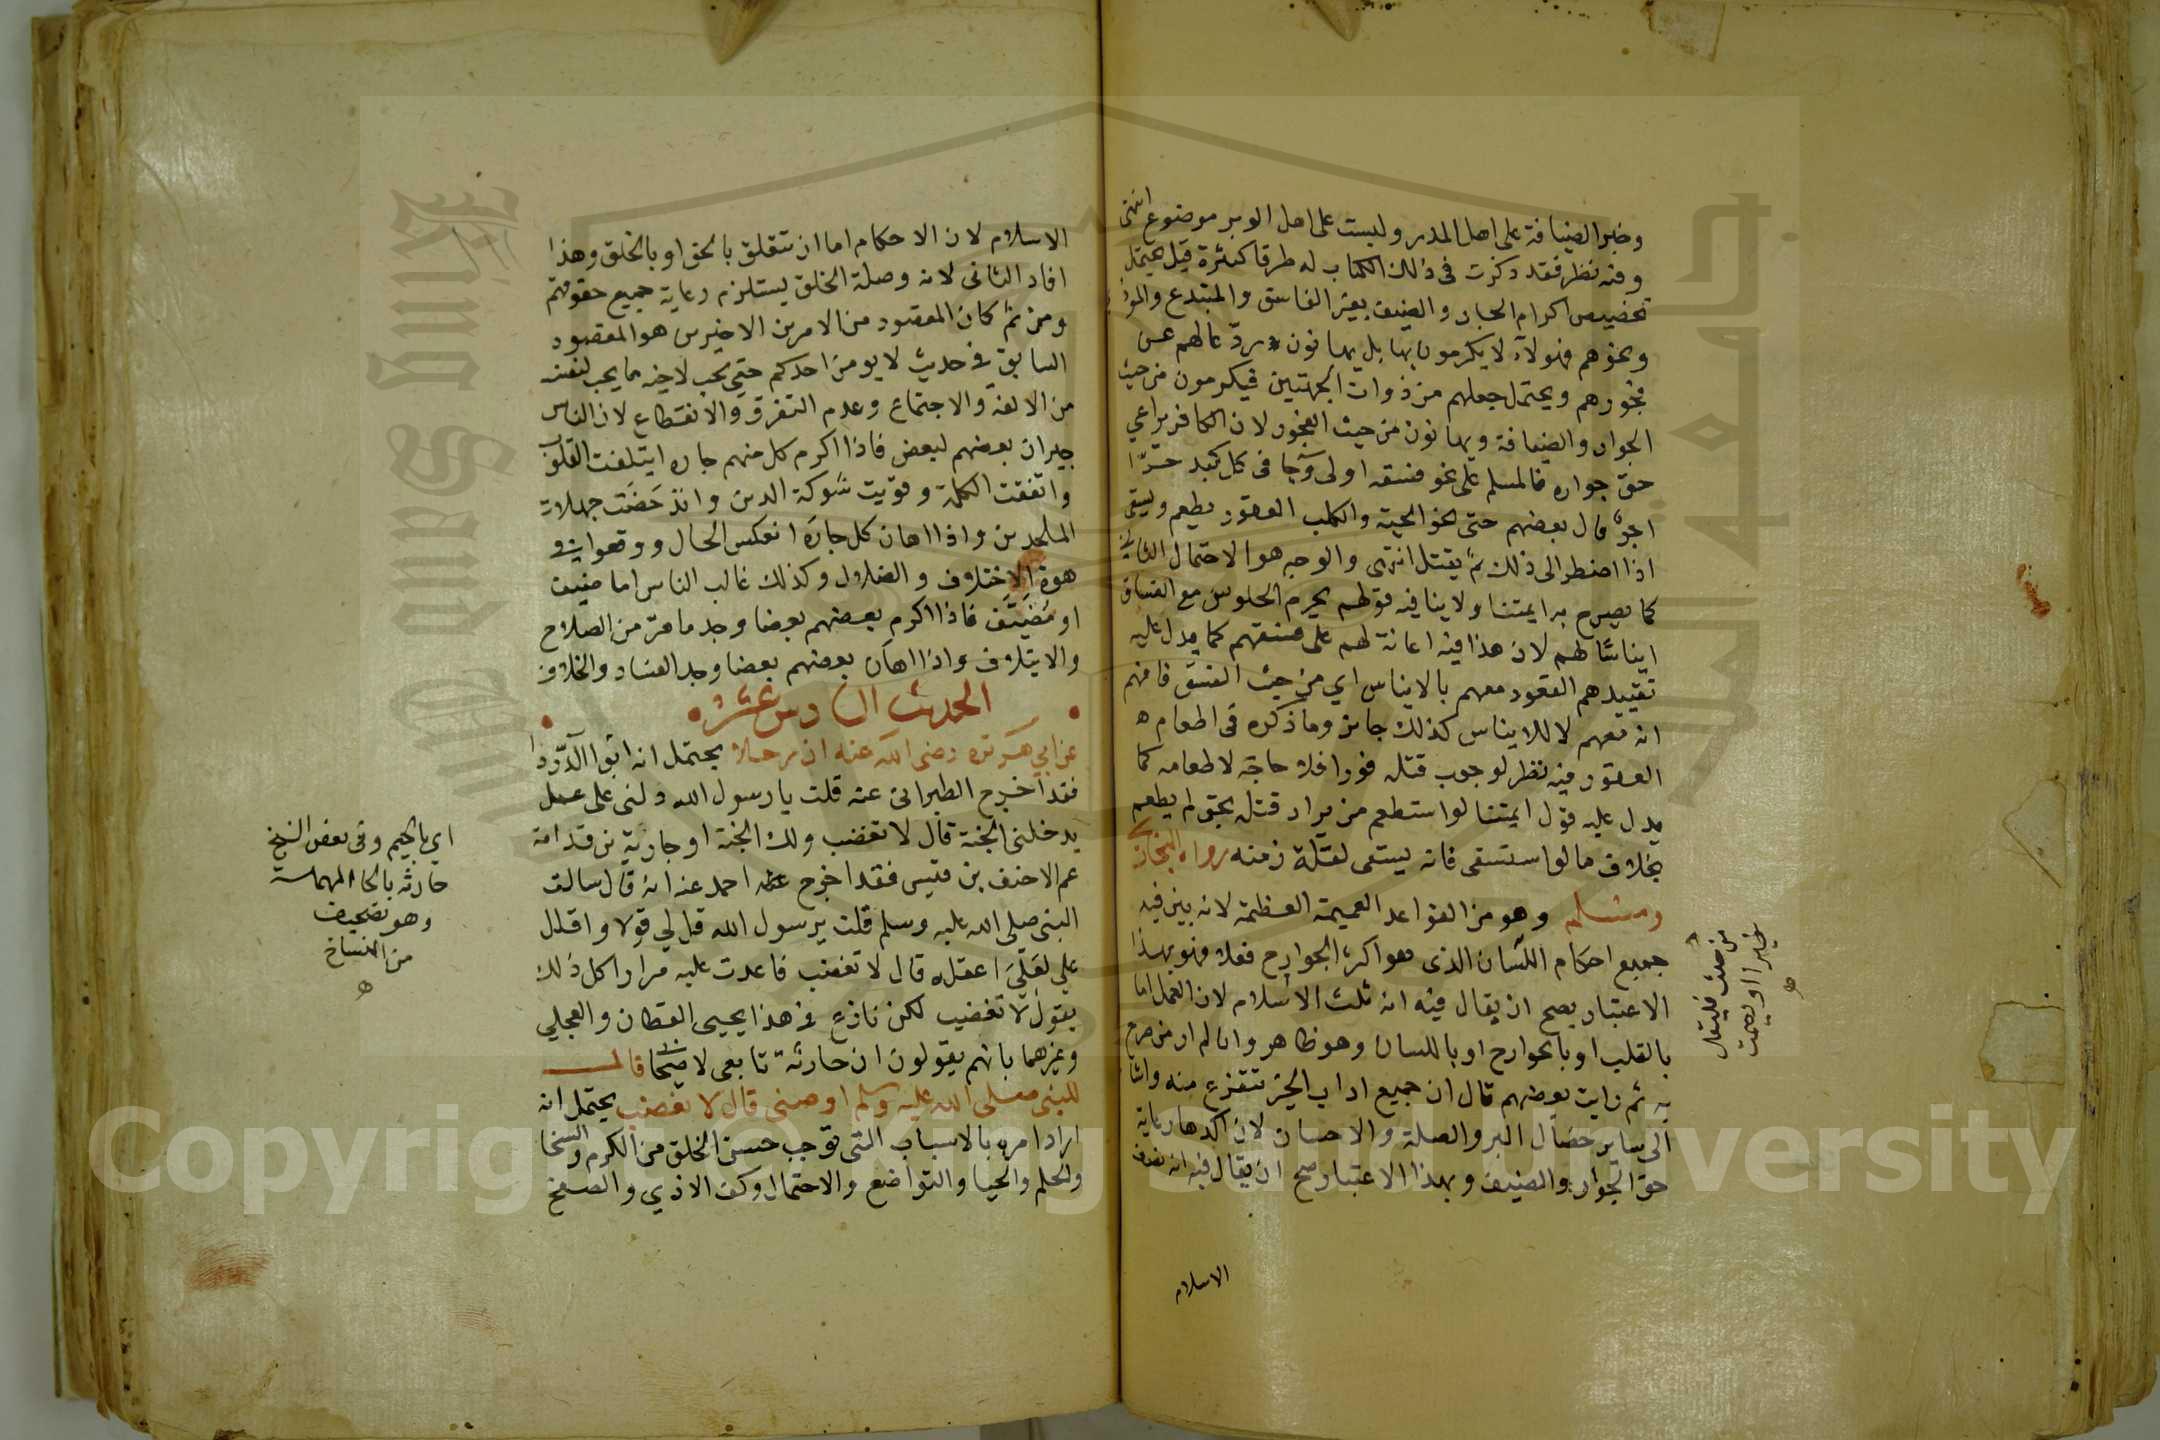 وخبر الضيافة على اهل المدر وليست على اهل الوبر موضوع انتهى
وفيه نظر فقد ذكرت فى ذلك الكتاب له طرقا كثيرة قيل يحتمل
تخصيص اكرام الجار والضيف بغير الفاسق والمبتدع والموذ
ونحوهم فهولآء لا يكرمون بها بل يهانون ردّعا لهم عن
فجورهم ويحتمل جعلهم من ذوات الجهتين فيكرمون من حيث
الجوار والضيافة ويهانون من حيث الفجور لان الكافر يراعي
حق جواره فالمسلم على نحو فسقه اولى وجا فى كل كبد حرّا
اجر قال بعضهم حتى نحو الحية والكلب العقور يطعم ويسقى
اذا اضطر الى ذلك ثم يقتل انتهى والوجه هو الاحتمال الثاني
كما يصرح به ايمتنا ولا ينافيه قولهم يحرم الجلوس مع الفساق
ايناسًا لهم لان هذا فيه اعانة لهم على فسقهم كما يدل عليه
تقييدهم القعود معهم بالايناس اي من حيث الفسق فافهم
انه معهم لا للايناس كذلك جايز وما ذكره فى اطعام
العقور فيه نظر لوجوب قتله فورا فلا حاجة لاطعامه كما
يدل عليه قول ايمتنا لو استطعم من يراد قتله بحق لم يطعم
بخلاف ما لو استسقى فانه يسقى لقلة زمنه رواه البخاري
ومسلم وهو من القواعد العميمة العظيمة لانه بين فيه
جميع احكام اللسان الذى هو اكثر الجوارح فعلا فهو بهذا
الاعتبار يصح ان يقال فيه انه ثلث الاسلام لان العمل اما
بالقلب او بالجوارح او باللسان وهو ظاهر وان لم ار من صرح
به ثم رايت بعضهم قال ان جميع اداب الخير تتفرع منه واشا
الى ساير خصال البر والصلة والاحسان لان اكدها رعاية
حق الجوار والضيف وبهذا الاعتبار صح ان يقال فيه انه نصف
الاسلام
من حيث فليقل
خيرا او ليصمت
الاسلام لان الاحكام اما ان تتعلق بالحق او بالخلق وهذا
افاد الثانى لانه وصلة الخلق يستلزم رعاية جميع حقوقهم
ومن ثم كان المقصود من الامرين الاخيرين هو المقصود
السابق فى حديث لا يومن احدكم حتى يحب لاخيه ما يحب لنفسه
من الالفة والاجتماع وعدم التفرق والانقطاع لان الناس
جيران بعضهم لبعض فاذا اكرم كل منهم جاره ايتلفت القلوب
واتفقت الكلمة وقويت شوكة الدين واندحضت جهلات
الملحدين واذا اهان كل جاره انعكس الحال ووقعوا فى
هوة الاختلاف والضلال وكذلك غالب الناس اما ضيف
او مُضَيَّف فاذا اكرم بعضهم بعضا وجد ما مرّ من الصلاح
والايتلاف واذا اهان بعضهم بعضا وجد الفساد والخلاف
الحديث السادس عشر
عن ابي هريرة رضى الله عنه ان رجلا يحتمل انه ابو الدّردا
فقد اخرج الطبرانى عنه قلت يا رسول الله دلنى على عمل
يدخلنى الجنة قال لا تغضب ولك الجنة او جارية بن قدامة
عم الاحنف بن قيس فقد اخرج احمد عنه انه قال سالت
النبى صلى الله عليه وسلم قلت يرسول الله قل لي قولا واقلل
علي لعَلّيَ اعقله قال لا تغضب فاعدت عليه مرارا كل ذلك
يقول لا تغضب لكن نازع فى هذا يحيى القطان والعجلي
وغيرهما بانهم يقولون ان حارثة تابعى لا صحابى قال
للنبى صلى الله عليه وسلم اوصنى قال لا تغضب يحتمل انه
اراد امره بالاسباب التى توجب حسن الخلق من الكرم والسخا
والحلم والحيا والتواضع والاحتمال وكف الاذي والصفح
اي بالجيم وفى بعض النسخ
حارثه بالحا المهملة
وهو تصحيف
من النساخ
King Saud University
جامعة الملك سعود
Copyright © King Saud University